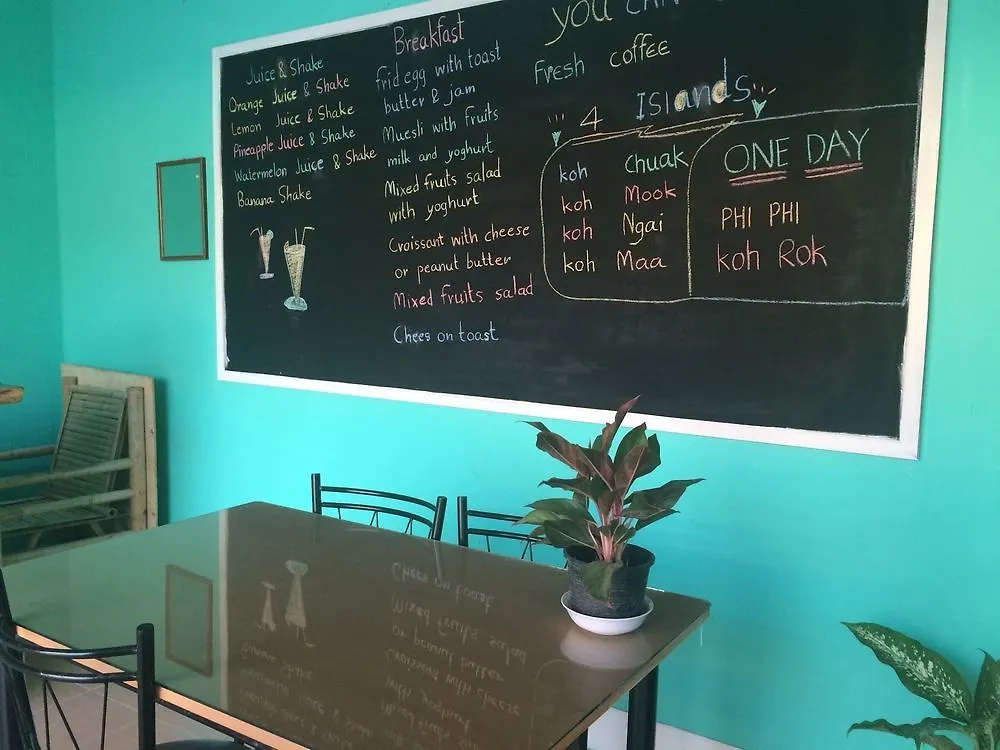 Juice & Shake
Orange Juice & Shake
Lemon Juice & Shake
Pineapple Juice & Shake
Watermelon Juice & Shake
Banana Shake
Breakfast
frid egg with toast
butter & jam
Muesli with fruits
milk and yoghurt
Mixed fruits salad
with yoghurt
Croissant with cheese
or peanut butter
Mixed fruits salad
Chees on toast
you CAN
Fresh coffee
4 Islands
koh Chuak
koh Mook
koh Ngai
koh Maa
ONE DAY
PHI PHI
koh Rok